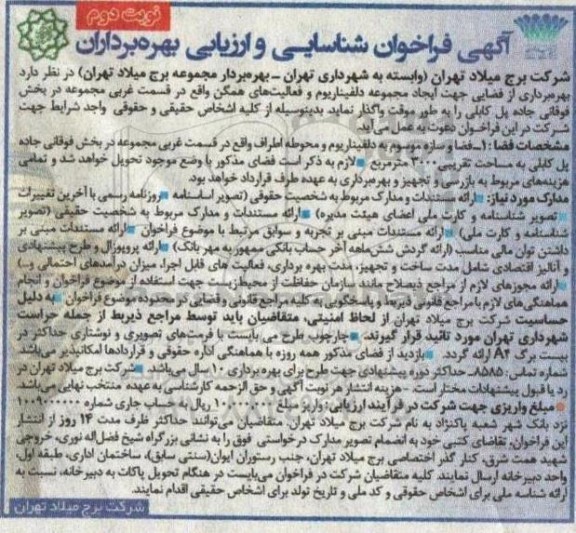 نوبت دوم
آگهی فراخوان شناسایی و ارزیابی بهره‌برداران
شرکت برج میلاد تهران (وابسته به شهرداری تهران - بهره‌بردار مجموعه برج میلاد تهران) در نظر دارد
بهره‌برداری از فضایی جهت ایجاد مجموعه دلفیناریوم و فعالیت‌های همگن واقع در قسمت غربی مجموعه در بخش
فوقانی جاده پل کابلی را به طور موقت واگذار نماید. بدینوسیله از کلیه اشخاص حقیقی و حقوقی واجد شرایط جهت
شرکت در این فراخوان دعوت به عمل می‌آید.
مشخصات فضا: ۱-فضا و سازه موسوم به دلفیناریوم و محوطه اطراف واقع در قسمت غربی مجموعه در بخش فوقانی جاده
پل کابلی به مساحت تقریبی ۳۰۰۰ مترمربع ■لازم به ذکر است فضای مذکور با وضع موجود تحویل خواهد شد و تمامی
هزینه‌های مربوط به بازرسی و تجهیز و بهره‌برداری به عهده طرف قرارداد خواهد بود.
مدارک مورد نیاز: ■ارائه مستندات و مدارک مربوط به شخصیت حقوقی (تصویر اساسنامه ■روزنامه رسمی با آخرین تغییرات
■تصویر شناسنامه و کارت ملی اعضای هیئت مدیره) ■ارائه مستندات و مدارک مربوط به شخصیت حقیقی (تصویر
شناسنامه و کارت ملی) ■ارائه مستندات مبنی بر تجربه و سوابق مرتبط با موضوع فراخوان ■ارائه مستندات مبنی بر
داشتن توان مالی مناسب (ارائه گردش شش‌ماهه آخر حساب بانکی ممهور به مهر بانک) ■ارائه پروپوزال و طرح پیشنهادی
و آنالیز اقتصادی شامل مدت ساخت و تجهیز، مدت بهره برداری، فعالیت های قابل اجرا، میزان درآمدهای احتمالی و...)
■ارائه مجوزهای لازم از مراجع ذیصلاح مانند سازمان حفاظت از محیط زیست جهت استفاده از موضوع فراخوان و انجام
هماهنگی‌های لازم با مراجع قانونی ذیربط و پاسخگویی به کلیه مراجع قانونی و قضایی در محدوده موضوع فراخوان ■به دلیل
حساسیت شرکت برج میلاد تهران از لحاظ امنیتی، متقاضیان باید توسط مراجع ذیربط از جمله حراست
شهرداری تهران مورد تائید قرار گیرند. ■چارچوب طرح می بایست با فرمت‌های تصویری و نوشتاری حداکثر در
بیست برگ A4 ارائه گردد. ■بازدید از فضای مذکور همه روزه با هماهنگی اداره حقوقی و قراردادها امکانپذیر می‌باشد.
شماره تماس: ۸۵۸۵ـ حداکثر دوره پیشنهادی جهت طرح برای بهره برداری ۱۰ سال می‌باشد. ■شرکت برج میلاد تهران در
رد یا قبول پیشنهادات مختار است. - هزینه انتشار هر نوبت آگهی و حق الزحمه کارشناسی به عهده منتخب نهایی می‌باشد.
■مبلغ واریزی جهت شرکت در فرآیند ارزیابی: واریز مبلغ ریال به حساب جاری شماره
نزد بانک شهر شعبه پاکنژاد به نام شرکت برج میلاد تهران. متقاضیان می‌توانند حداکثر ظرف مدت ۱۴ روز از انتشار
این فراخوان، تقاضای کتبی خود به انضمام تصویر مدارک درخواستی فوق را به نشانی بزرگراه شیخ فضل‌اله نوری، خروجی
شهید همت شرق، کنار گذر اختصاصی برج میلاد تهران، جنب رستوران ایوان(سنتی سابق)، ساختمان اداری، طبقه اول،
واحد دبیرخانه ارسال نمایند. کلیه متقاضیان شرکت در فراخوان می‌بایست در هنگام تحویل پاکات به دبیرخانه، نسبت به
ارائه شناسه ملی برای اشخاص حقوقی و کد ملی و تاریخ تولد برای اشخاص حقیقی اقدام نمایند.
شرکت برج میلاد تهران